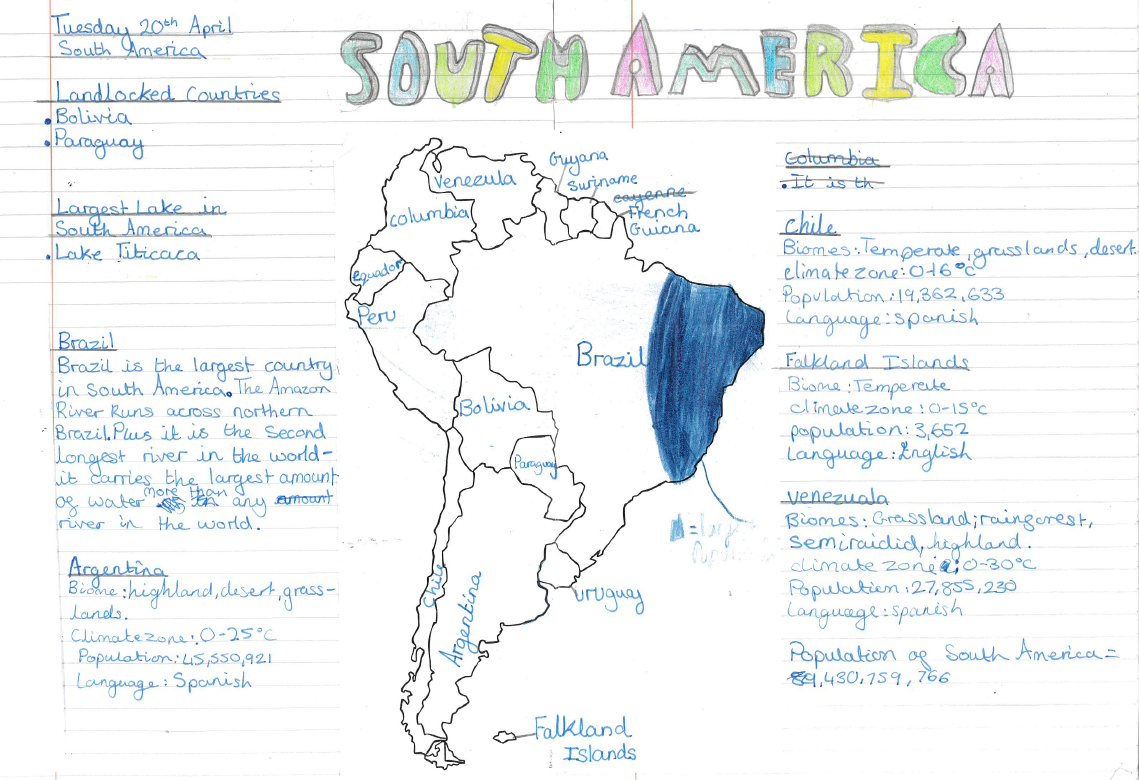 Tuesday 20th April
South America
SOUTH AMERICA
Landlocked Countries
• Bolivia
• Paraguay
Largest Lake in
South America
• Lake Titicaca
Brazil
Brazil is the largest country
in South America. The Amazon
River Runs across northern
Brazil. Plus it is the second
longest river in the world-
it carries the largest amount
of water more than any amount
river in the world.
Argentina
Biome: highland, desert, grass-
lands.
Climate zone: 0-25°C
Population: 45,550,921
Language: Spanish
Guyana
Venezula
Suriname
cayenne
French
Guiana
Columbia
Equador
Peru
Brazil
Bolivia
Paraguay
Chile
Argentina
Uruguay
Falkland
Islands
Columbia
• It is th
Chile
Biomes: Temperate, grasslands, desert.
climate zone: 0-16°C
Population: 19,362,633
Language: spanish
Falkland Islands
Biome: Temperate
climate zone: 0-15°C
population: 3,652
Language: English
Venezuala
Biomes: Grassland; rainforest,
Semiraidid, highland.
climate zone: 0-30°C
Population: 27,855,230
Language: spanish
Population of South America =
9,430,759,766